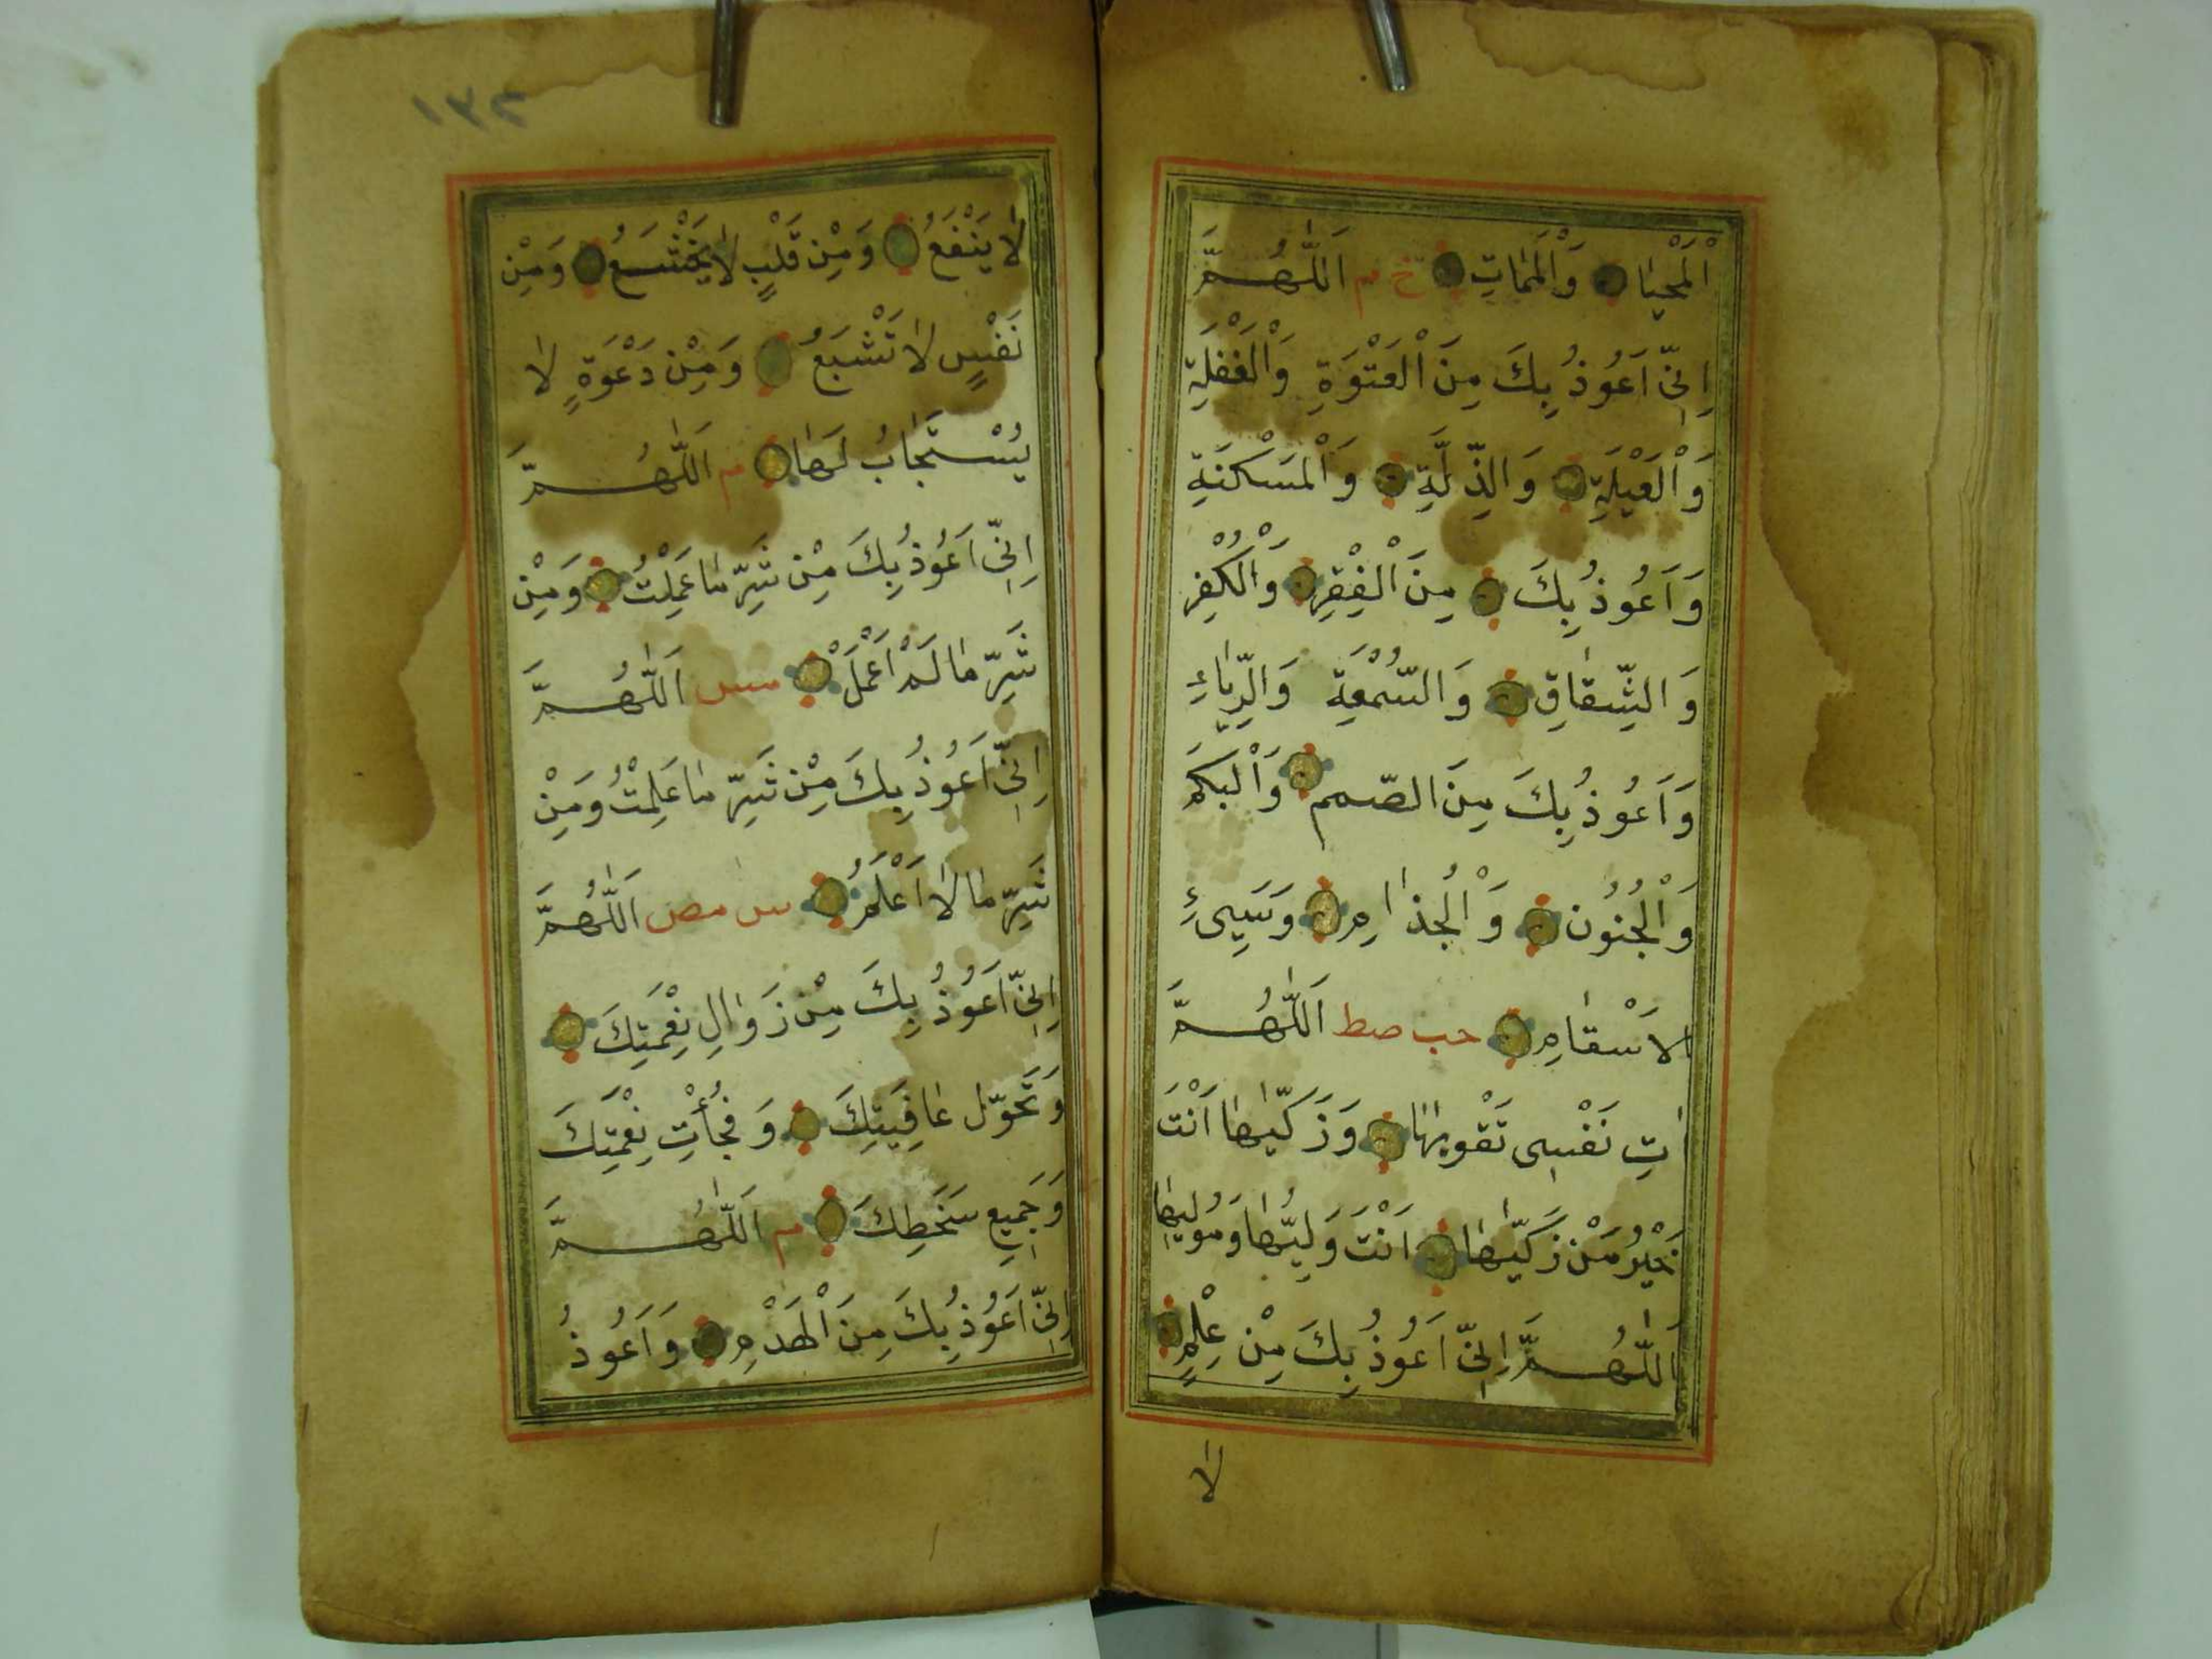 اَلْمَحْيَا وَالْمَمَاتِ خ م اَللّٰهُمَّ
اِنِّى اَعُوذُ بِكَ مِنَ الْقَسْوَةِ وَالْغَفْلَةِ
وَالْعَيْلَةِ وَالذِّلَّةِ وَالْمَسْكَنَةِ
وَاَعُوذُ بِكَ مِنَ الْفَقْرِ وَالْكُفْرِ
وَالشِّقَاقِ وَالسُّمْعَةِ وَالرِّيَاءِ
وَاَعُوذُ بِكَ مِنَ الصَّمَمِ وَالْبَكَمِ
وَالْجُنُونِ وَالْجُذَامِ وَسَيِّئِ
الْاَسْقَامِ حب صط اَللّٰهُمَّ
اٰتِ نَفْسِى تَقْوٰيهَا وَزَكِّيهَا اَنْتَ
خَيْرُ مَنْ زَكّٰيهَا اَنْتَ وَلِيُّهَا وَمُوْلٰيهَا
اَللّٰهُمَّ اِنِّى اَعُوذُ بِكَ مِنْ عِلْمٍ
لَا
١٣٢
لَا يَنْفَعُ وَمِنْ قَلْبٍ لَا يَخْشَعُ وَمِنْ
نَفْسٍ لَا تَشْبَعُ وَمِنْ دَعْوَةٍ لَا
يُسْتَجَابُ لَهَا م اَللّٰهُمَّ
اِنِّى اَعُوذُ بِكَ مِنْ شَرِّ مَا عَمِلْتُ وَمِنْ
شَرِّ مَا لَمْ اَعْمَلْ م س اَللّٰهُمَّ
اِنِّى اَعُوذُ بِكَ مِنْ شَرِّ مَا عَلِمْتُ وَمِنْ
شَرِّ مَا لَا اَعْلَمُ س مص اَللّٰهُمَّ
اِنِّى اَعُوذُ بِكَ مِنْ زَوَالِ نِعْمَتِكَ
وَتَحَوُّلِ عَافِيَتِكَ وَفُجْأَتِ نِقْمَتِكَ
وَجَمِيعِ سَخَطِكَ م اَللّٰهُمَّ
اِنِّى اَعُوذُ بِكَ مِنَ الْهَدْمِ وَاَعُوذُ